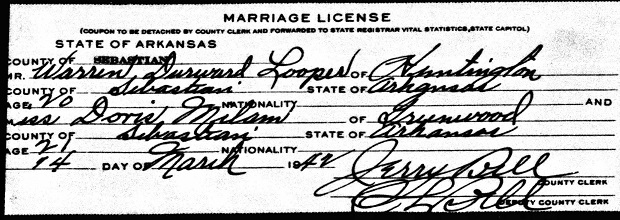 MARRIAGE LICENSE
(COUPON TO BE DETACHED BY COUNTY CLERK AND FORWARDED TO STATE REGISTRAR VITAL STATISTICS, STATE CAPITOL)
STATE OF ARKANSAS
COUNTY OF SEBASTIAN
MR. Warren Durward Looper OF Huntington
COUNTY OF Sebastian STATE OF Arkansas
AGE 20 NATIONALITY AND
Miss Doris Milam OF Greenwood
COUNTY OF Sebastian STATE OF Arkansas
AGE 21 NATIONALITY
14 DAY OF March 1942 Jerry Bell
COUNTY CLERK
C L Bell
DEPUTY COUNTY CLERK